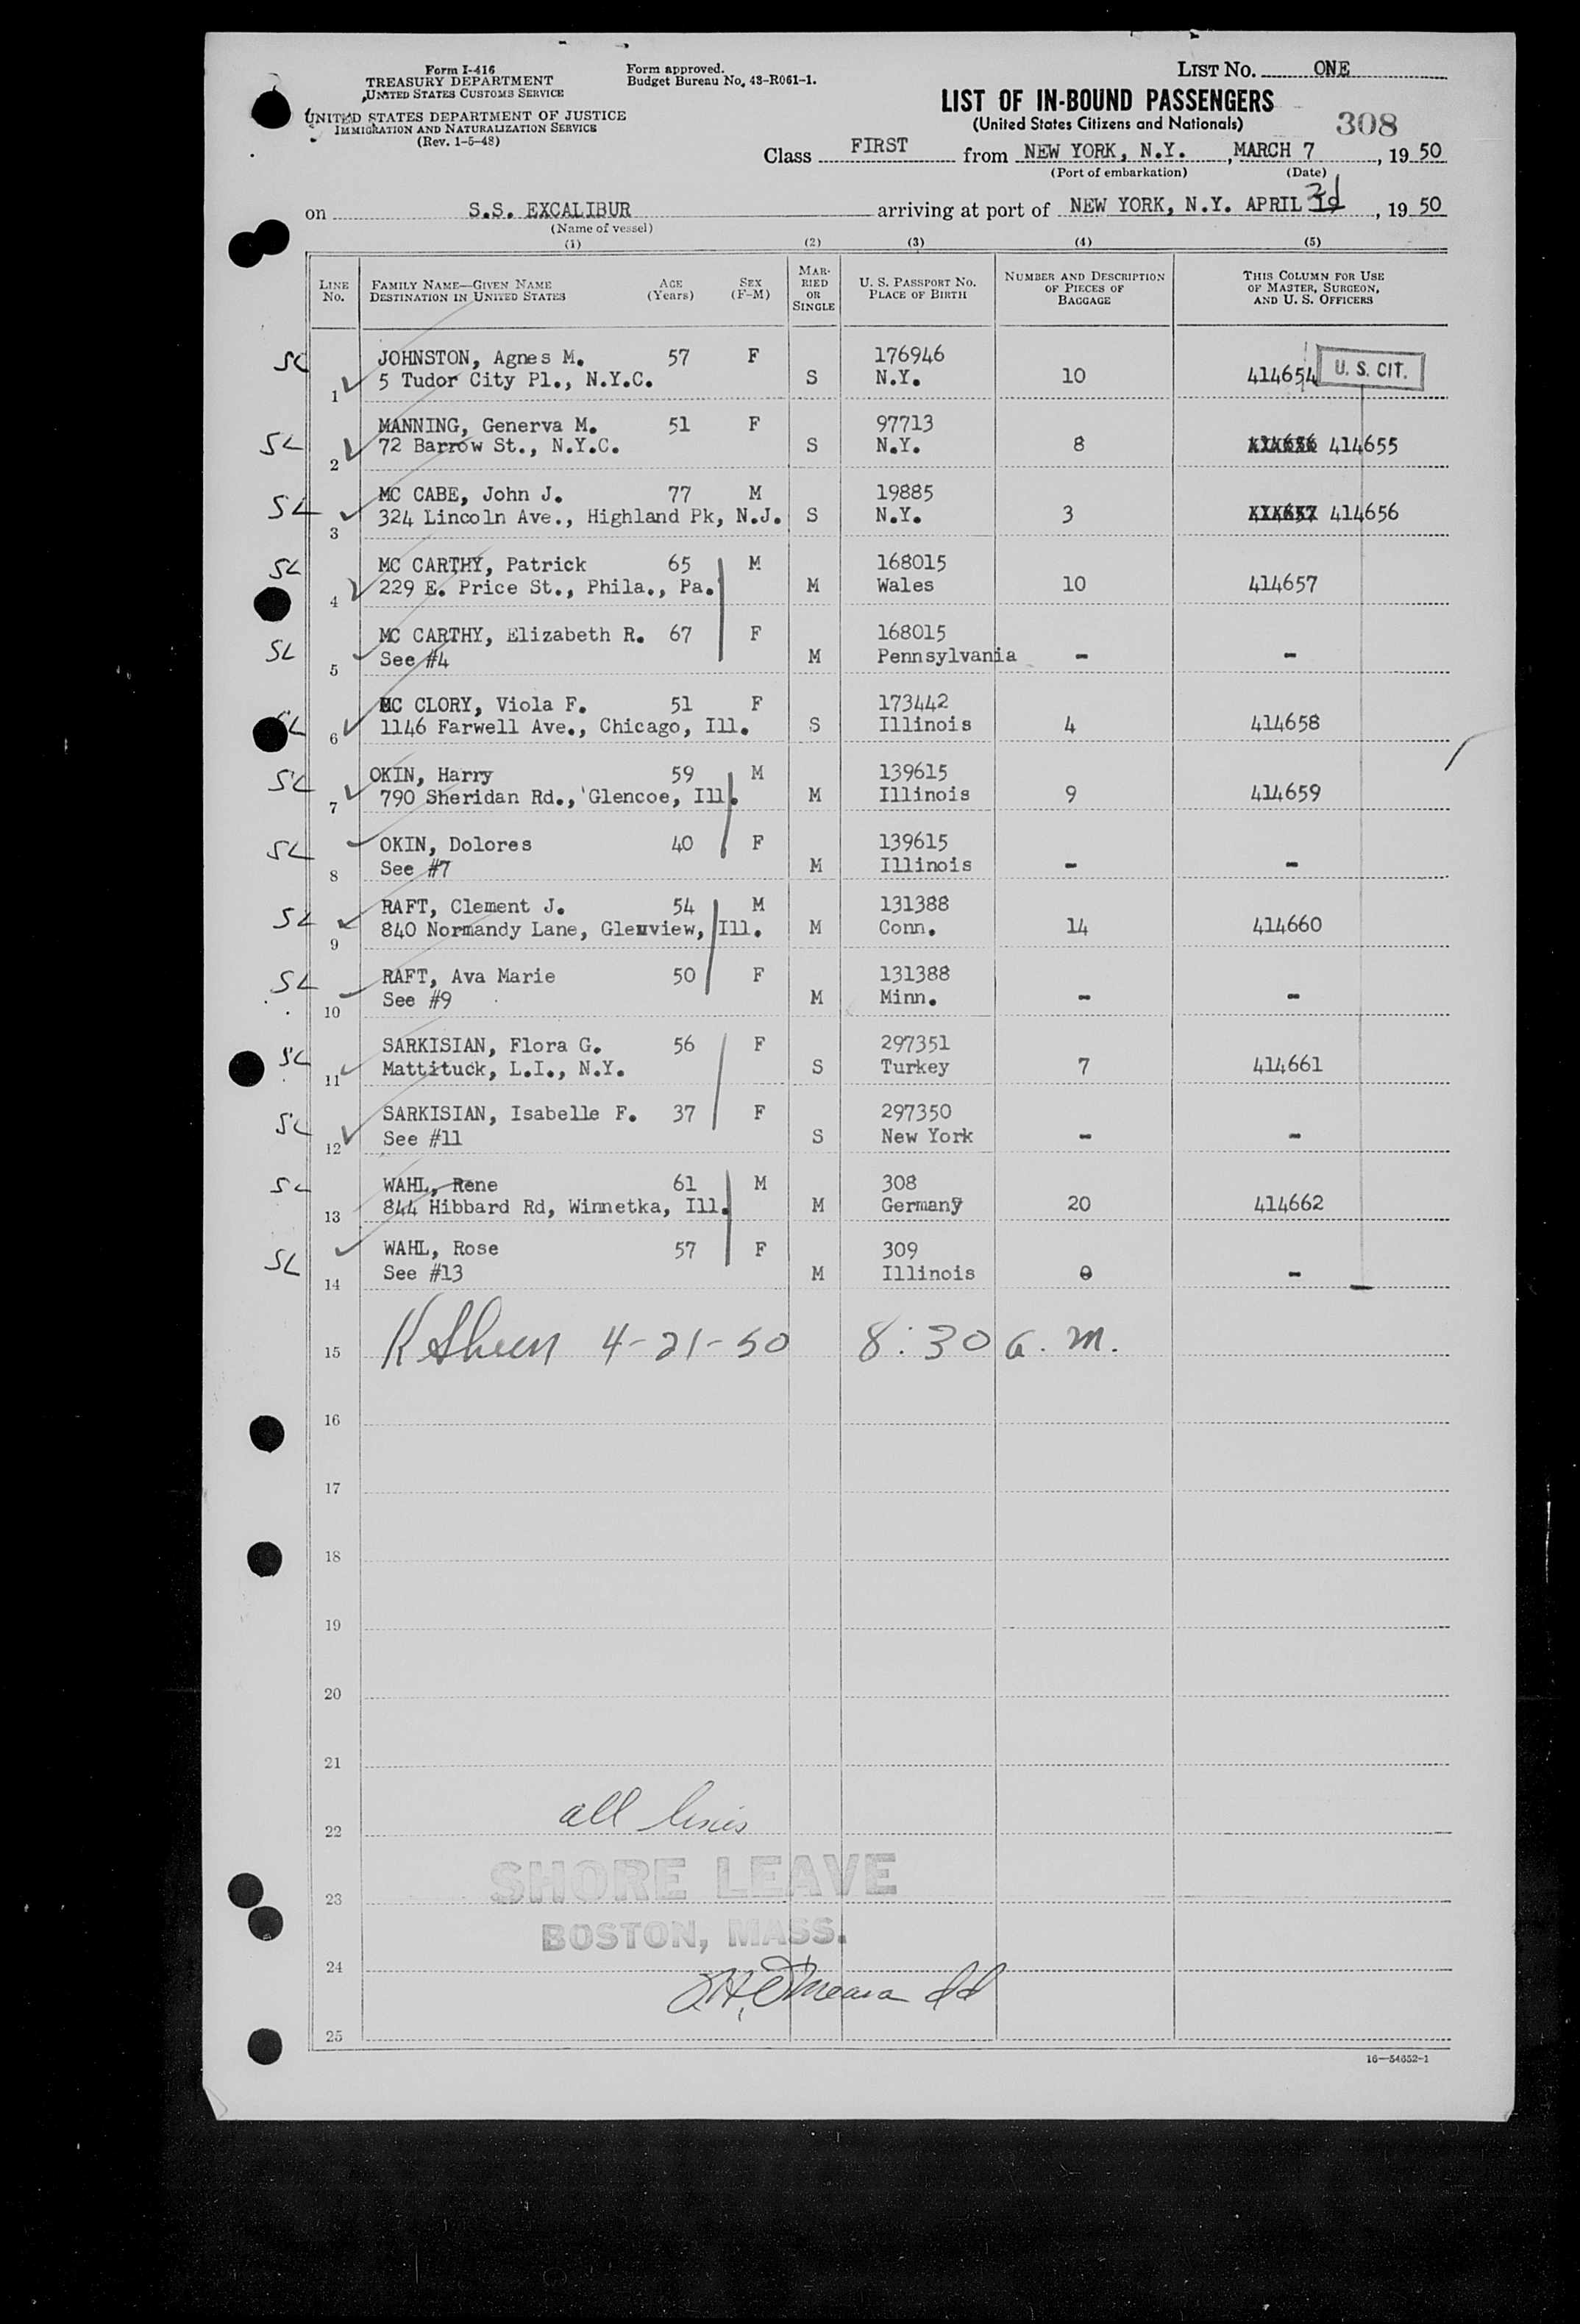 Form I-416
TREASURY DEPARTMENT
UNITED STATES CUSTOMS SERVICE
UNITED STATES DEPARTMENT OF JUSTICE
IMMIGRATION AND NATURALIZATION SERVICE
(Rev. 1-5-48)
Form approved.
Budget Bureau No. 43-R061-1.
LIST No. ONE
LIST OF IN-BOUND PASSENGERS
(United States Citizens and Nationals)
308
Class FIRST from NEW YORK, N.Y., MARCH 7, 19 50
(Port of embarkation) (Date)
on S.S. EXCALIBUR arriving at port of NEW YORK, N.Y. APRIL 21, 19 50
(Name of vessel)
(1) (2) (3) (4) (5)
LINE No. FAMILY NAME—GIVEN NAME DESTINATION IN UNITED STATES AGE (Years) SEX (F-M) MARRIED OR SINGLE U. S. PASSPORT No. PLACE OF BIRTH NUMBER AND DESCRIPTION OF PIECES OF BAGGAGE THIS COLUMN FOR USE OF MASTER, SURGEON, AND U. S. OFFICERS
SL JOHNSTON, Agnes M. 57 F 176946
1 5 Tudor City Pl., N.Y.C. S N.Y. 10 414654 U. S. CIT.
SL MANNING, Generva M. 51 F 97713
2 72 Barrow St., N.Y.C. S N.Y. 8 414655
SL MC CABE, John J. 77 M 19885
3 324 Lincoln Ave., Highland Pk, N.J. S N.Y. 3 414656
SL MC CARTHY, Patrick 65 M 168015
4 229 E. Price St., Phila., Pa. M Wales 10 414657
SL MC CARTHY, Elizabeth R. 67 F 168015
5 See #4 M Pennsylvania - -
SL MC CLORY, Viola F. 51 F 173442
6 1146 Farwell Ave., Chicago, Ill. S Illinois 4 414658
SL OKIN, Harry 59 M 139615
7 790 Sheridan Rd., Glencoe, Ill. M Illinois 9 414659
SL OKIN, Dolores 40 F 139615
8 See #7 M Illinois - -
SL RAFT, Clement J. 54 M 131388
9 840 Normandy Lane, Glenview, Ill. M Conn. 14 414660
SL RAFT, Ava Marie 50 F 131388
10 See #9 M Minn. - -
SL SARKISIAN, Flora G. 56 F 297351
11 Mattituck, L.I., N.Y. S Turkey 7 414661
SL SARKISIAN, Isabelle F. 37 F 297350
12 See #11 S New York - -
SL WAHL, Rene 61 M 308
13 844 Hibbard Rd, Winnetka, Ill. M Germany 20 414662
SL WAHL, Rose 57 F 309
14 See #13 M Illinois 0 -
15 4-21-50 8:30 a.m.
16
17
18
19
20
21
22 all lines
23 SHORE LEAVE
BOSTON, MASS.
24
25
16—54652-1